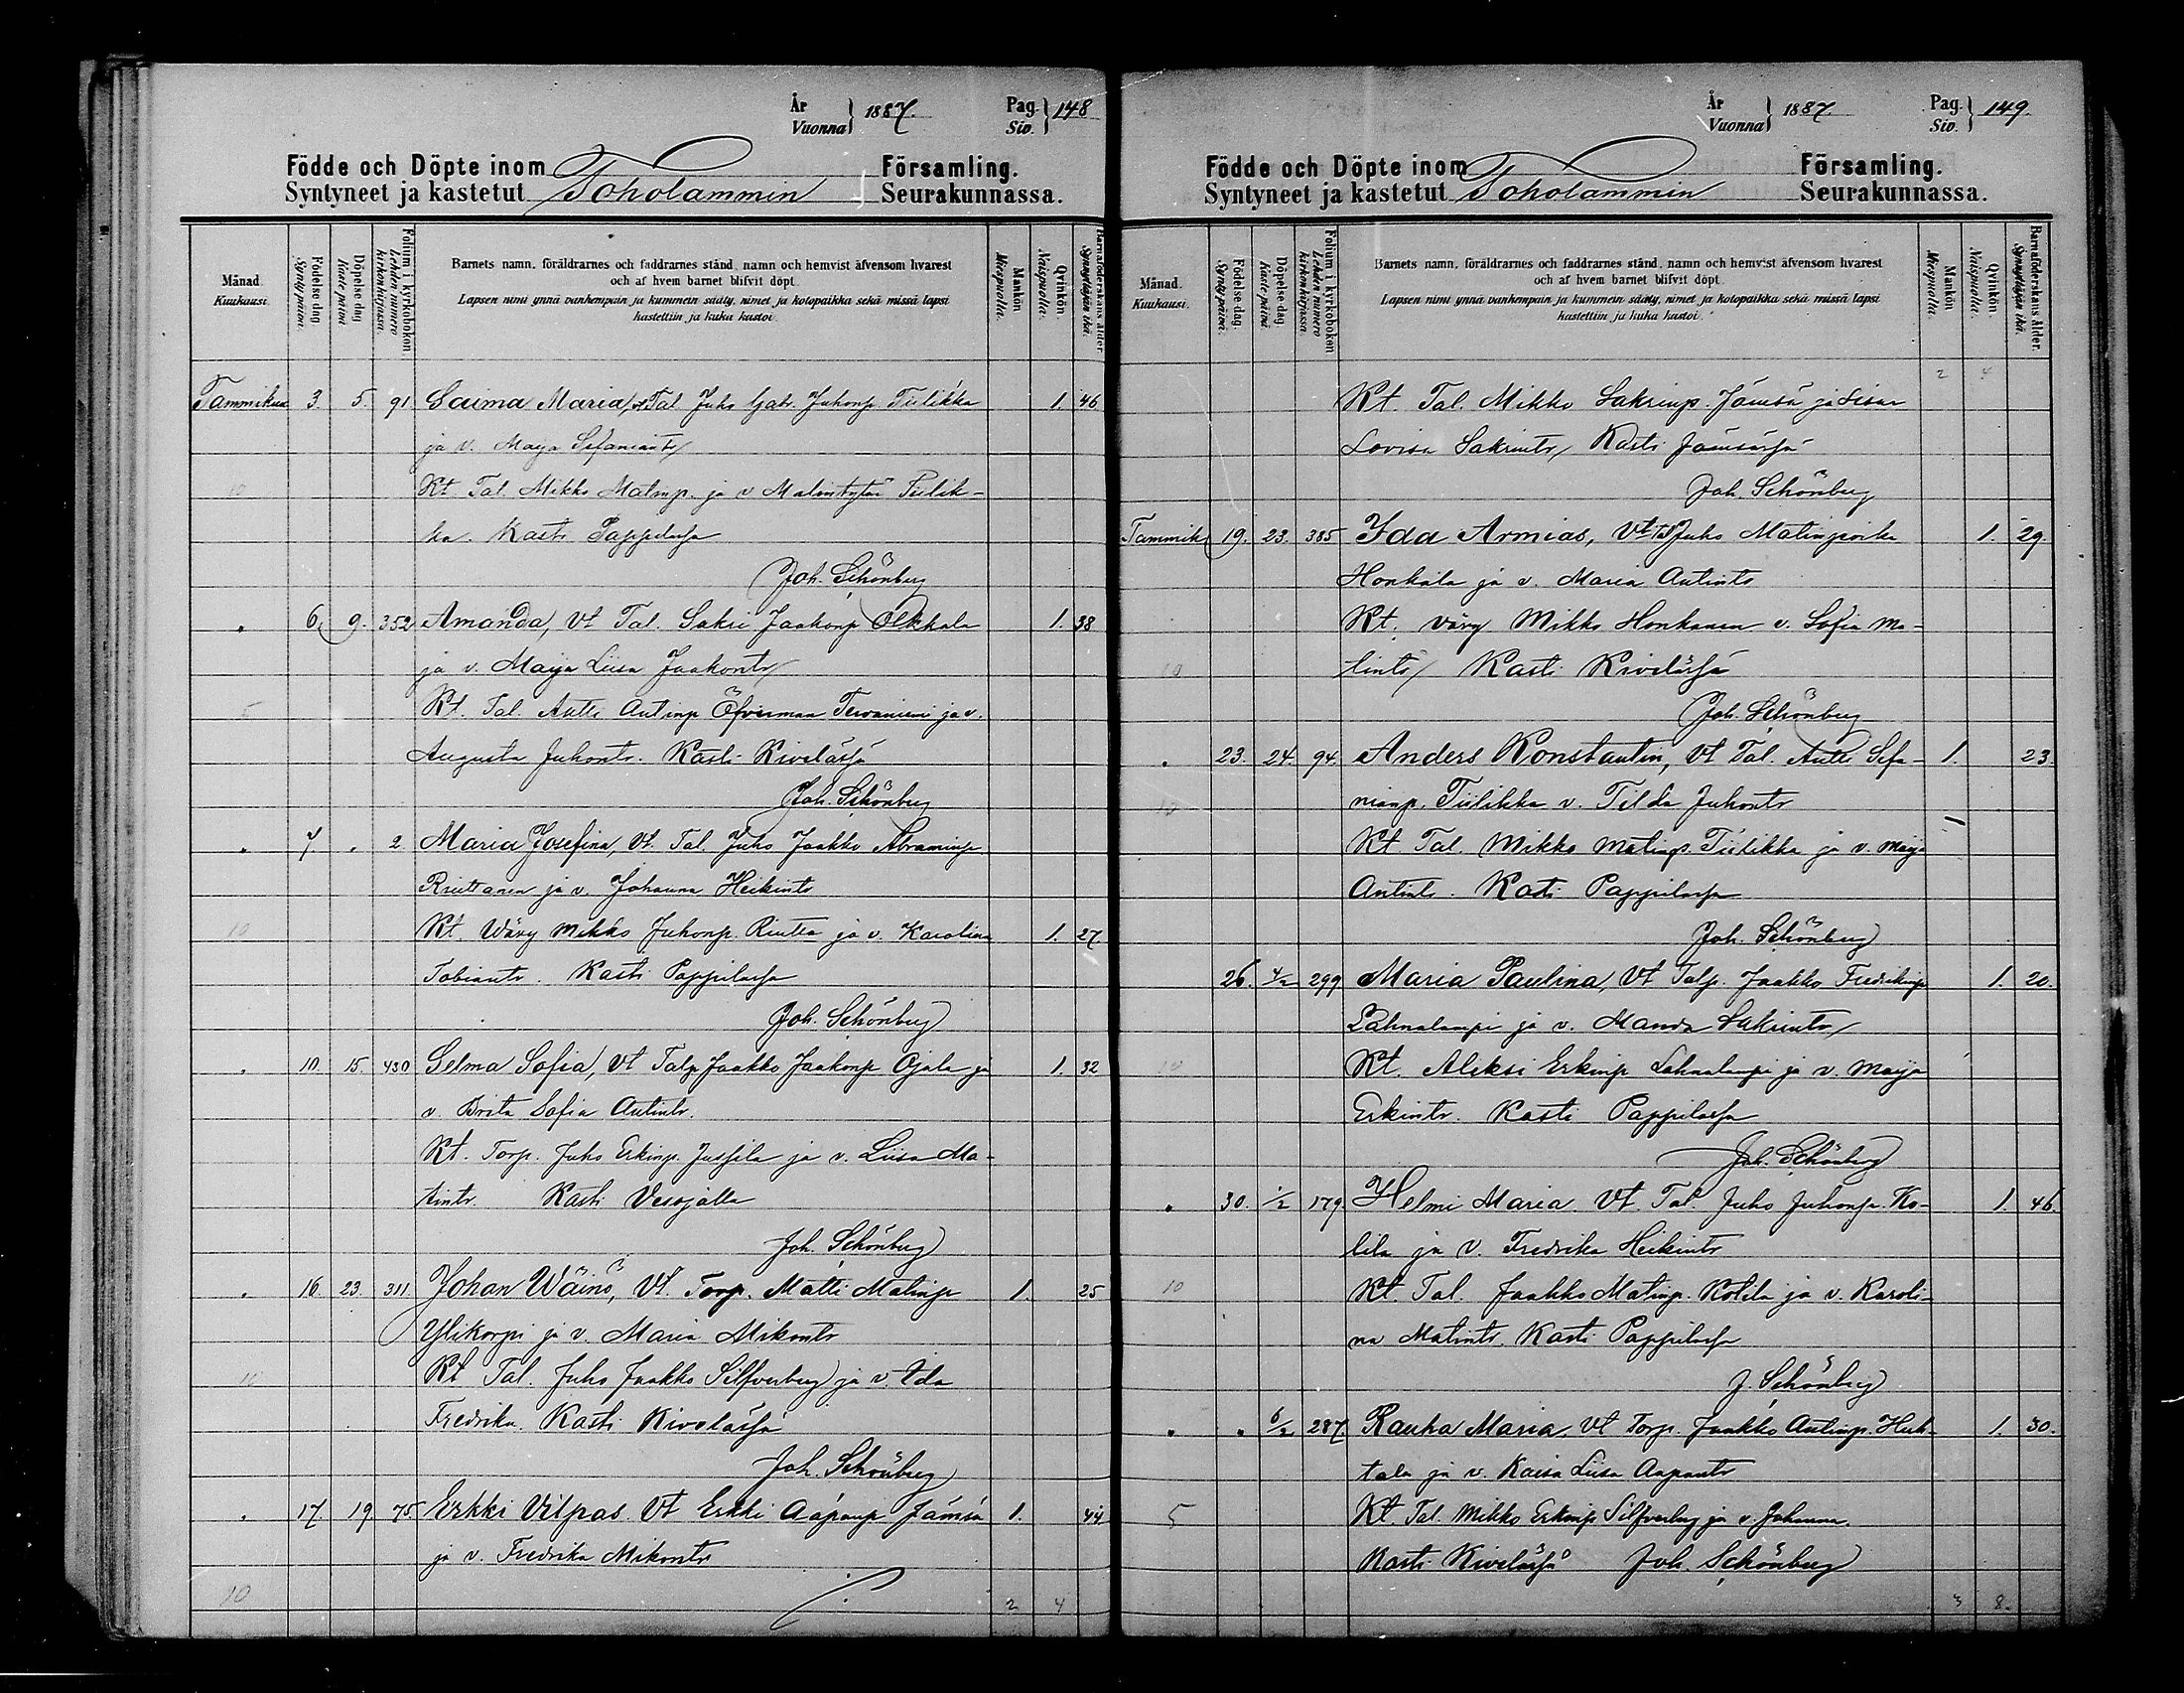 År
Vuonna } 1887.
Pag.
Siv. } 148
Födde och Döpte inom Församling.
Syntyneet ja kastetut Toholammin Seurakunnassa.
Månad. Kuukausi. Födelse dag. Synty päivä. Döpelse dag Kaste päivä Folium i kyrkoboken. Lehden numero kirkonkirjassa. Barnets namn, föräldrarnes och faddrarnes stånd, namn och hemvist äfvensom hvarest och af hvem barnet blifvit döpt. Mankön. Miespuolia. Qvinkön. Naispuolia. Barnaföderskans ålder. Synnyttäjän ikä.
Lapsen nimi ynnä vanhempain ja kummein sääty, nimet ja kotopaikka sekä missä lapsi kastettiin ja kuka kastoi.
Tammikuu 3. 5. 91 Saima Maria, vt Tal Juho Gabr. Juhonp Tiilikka 1. 46
ja v. Maija Sefaniantr
10 Kt Tal. Mikko Matinp. ja v Malviitytär Tiilik-
ka. Kasti Pappilassa
Joh. Schönberg
" 6. 9. 352 Amanda, Vt Tal. Sakri Jaakonp Olkkala 1. 38
ja v. Maija Liisa Jaakontr
5 Kt. Tal. Antti Antinp Öfverman Tervaniemi ja v.
Augusta Juhontr. Kasti Kivelässä
Joh. Schönberg
" 7. " 2 Maria Josefina, Vt. Tal. Juho Jaakko Abraminp
Riuttanen ja v. Johanna Heikintr
10 Kt. Wävy Mikko Juhonp. Riutta ja v. Karolina 1. 27.
Tobiantr. Kasti Pappilassa
Joh. Schönberg
" 10. 15. 430 Selma Sofia, Vt Talp Jaakko Jaakonp Ojala ja 1. 32
v. Brita Sofia Antintr.
Kt. Torp. Juho Erkinp. Jussila ja v. Liisa Ma-
tintr. Kasti Vesojalla
Joh. Schönberg
" 16. 23. 311. Johan Wäinö, Vt. Torp. Matti Matinp 1. 25
Ylikorpi ja v. Maria Mikontr
10 Kt Tal. Juho Jaakko Silfverberg ja v. Ida
Fredrika. Kasti Kivelässä
Joh. Schönberg
" 17. 19. 75. Erkki Vilpas. Vt Erkki Aaponp Jämsä 1. 44.
ja v. Fredrika Mikontr
10 2 4
År
Vuonna } 1887.
Pag.
Siv. } 149.
Födde och Döpte inom Församling.
Syntyneet ja kastetut Toholammin Seurakunnassa.
Månad. Kuukausi. Födelse dag. Synty päivä. Döpelse dag Kaste päivä. Folium i kyrkoboken Lehden numero kirkonkirjassa. Barnets namn, föräldrarnes och faddrarnes stånd, namn och hemvist äfvensom hvarest och af hvem barnet blifvit döpt. Mankön Miespuolia. Qvinkön. Naispuolia. Barnaföderskans ålder. Synnyttäjän ikä.
Lapsen nimi ynnä vanhempain ja kummein sääty, nimet ja kotopaikka sekä missä lapsi kastettiin ja kuka kastoi.
2 4
Kt. Tal. Mikko Sakrinp. Jämsä ja sisar
Lovisa Sakrintr Kasti Jämsässä
Joh. Schönberg
Tammik. 19. 23. 385 Ida Armias, Vt Juho Matinpoika 1. 29.
Honkala ja v. Maria Antintr
Kt. Vävy Mikko Honkanen v. Sofia Ma-
10 tintr Kasti Kivelässä
Joh. Schönberg
" 23. 24 94. Anders Konstantin, Vt Tal. Antti Sefa- 1. 23.
10 nianp. Tiilikka v. Tilda Juhontr
Kt Tal. Mikko Matinp. Tiilikka ja v. Maija
Antintr. Kasti Pappilassa
Joh. Schönberg
26. 4/2 299 Maria Paulina, Vt Talp. Jaakko Fredrikinp 1. 20.
Lahnalampi ja v. Manda Sakrintr
10 Kt. Aleksi Erkinp Lahnalampi ja v. Maija
Erkintr. Kasti Pappilassa
Joh. Schönberg
" 30. 1/2 179. Helmi Maria Vt. Tal. Juho Juhonp. Ko- 1. 46.
lila ja v. Fredrika Heikintr
10 Kt. Tal. Jaakko Matinp. Kolila ja v. Karoli-
na Matintr. Kasti Pappilassa
J. Schönberg
" " 6/2 287. Rauha Maria. Vt Torp. Jaakko Antinp. Huh- 1. 30.
tala ja v. Kaisa Liisa Aapontr
5 Kt. Tal. Mikko Erkinp Silfverberg ja v. Johanna.
Kasti Kivelässä Joh. Schönberg
3 8.